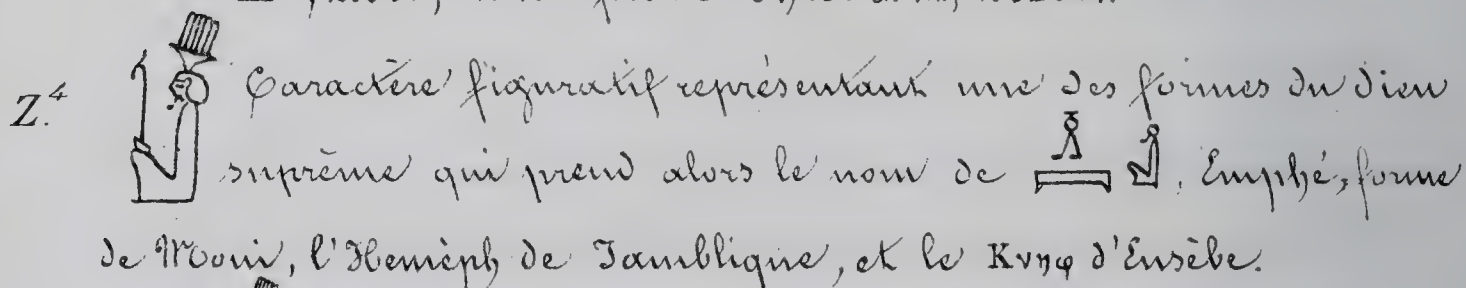 Z.⁴ Caractère figuratif représentant une des formes du dieu
suprême qui prend alors le nom de . Emphé, forme
de Moui, l'Heméph de Jamblique, et le Κνηφ d'Eusèbe.